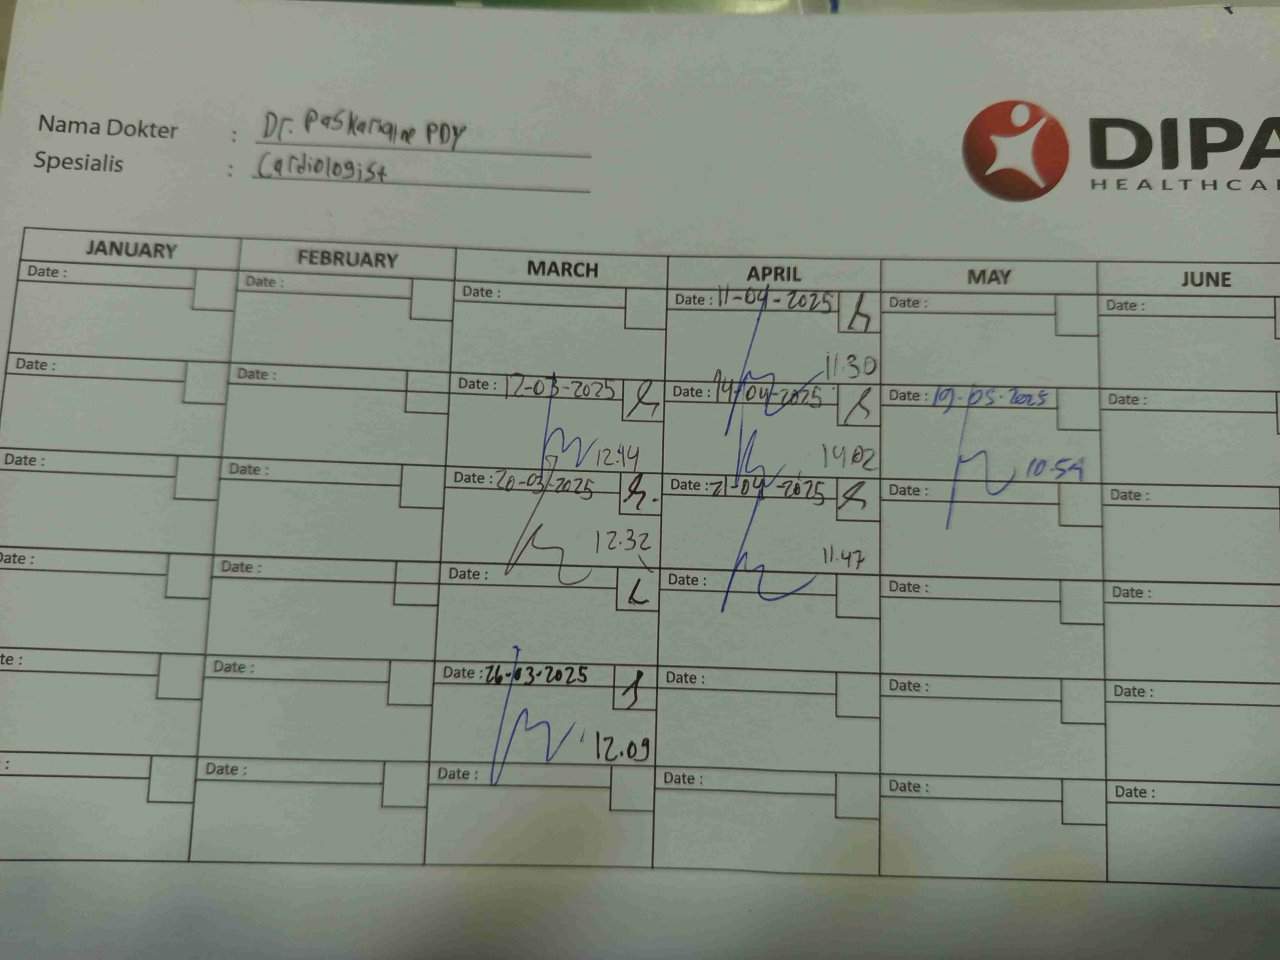 Nama Dokter : Dr. PDY
Spesialis : Cardiologist
DIPA
HEALTHCA
JANUARY FEBRUARY MARCH APRIL MAY JUNE
Date : Date : Date : Date : 11-04-2025 Date : Date :
11.30
Date : Date : Date : 12-03-2025 Date : 14-04-2025 Date : 19-05-2025 Date :
12.44 14.02 10.54
Date : Date : Date : 20-03-2025 Date : 21-04-2025 Date : Date :
12.32 11.47
Date : Date : Date : Date : Date : Date :
te : Date : Date : 26-03-2025 Date : Date : Date :
12.09
: Date : Date : Date : Date : Date :